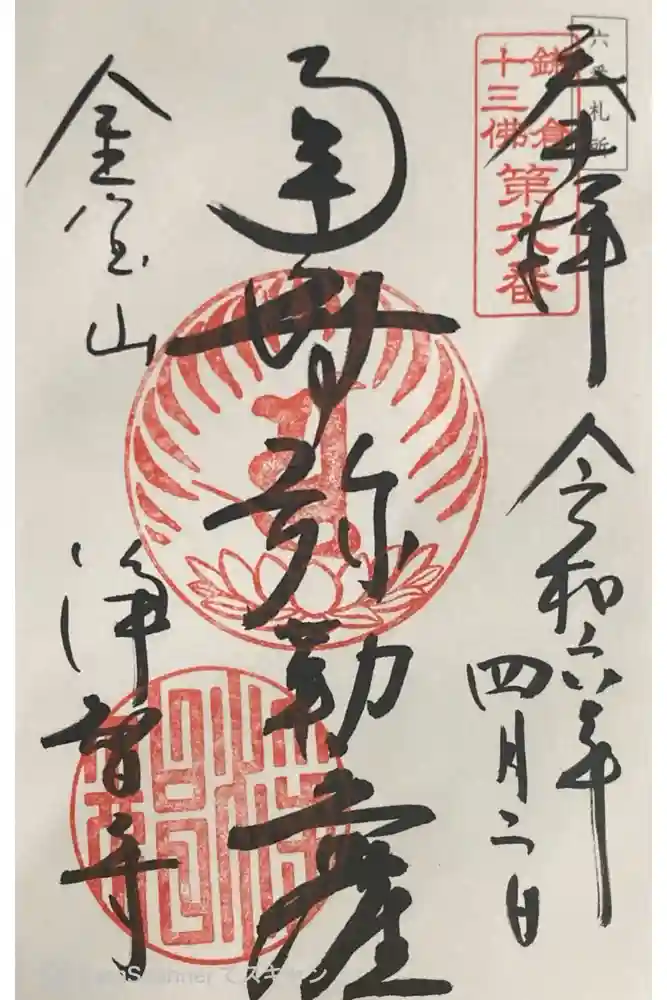 六番札所
鎌倉
十三佛
第六番
奉拝
令和六年
四月二日
南無弥勒菩薩
金宝山
浄智寺
CamScanner でスキャン